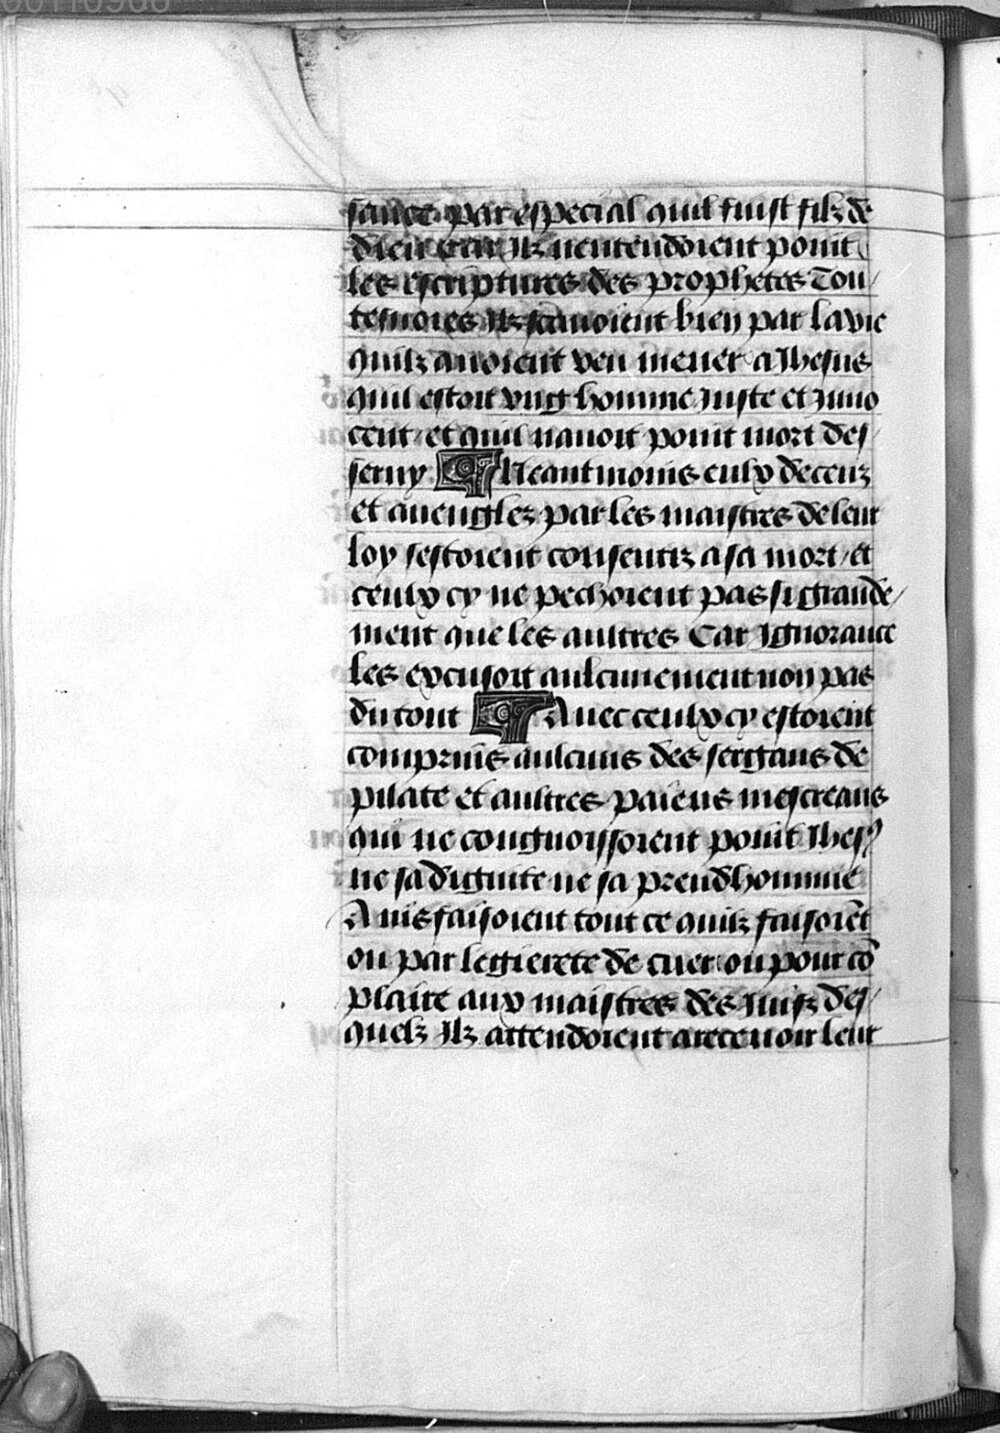 sance par especial quil fuist filz de
dieu car Ilz nentendoient point
les escriptures des prophetes Tou/
tesuoies Ilz scauoient bien par la vie
quilz auoient veu mener a Jhesus
quil estoit vng homme Juste et Inno
cent / et quil nauoit point mort des/
seruy ¶ Neantmoins eulx deceuz
et aueuglez par les maistres de leur
loy sestoient consentiz a sa mort / et
ceulx cy ne pechoient pas si grande/
ment que les aultres Car Ignorance
les excusoit aulcunement non pas
du tout ¶ Auec ceulx cy estoient
comprins aulcuns des sergans de
pilate et aultres paiens mescreans
qui ne congnoissoient point Jhesꝰ
ne sa dignite ne sa preudhommie
Ains faisoient tout ce quilz faisoiēt
ou par legierete de cuer ou pour cō
plaire aux maistres des Juifz des/
quelz Ilz attendoient a receuoir leur